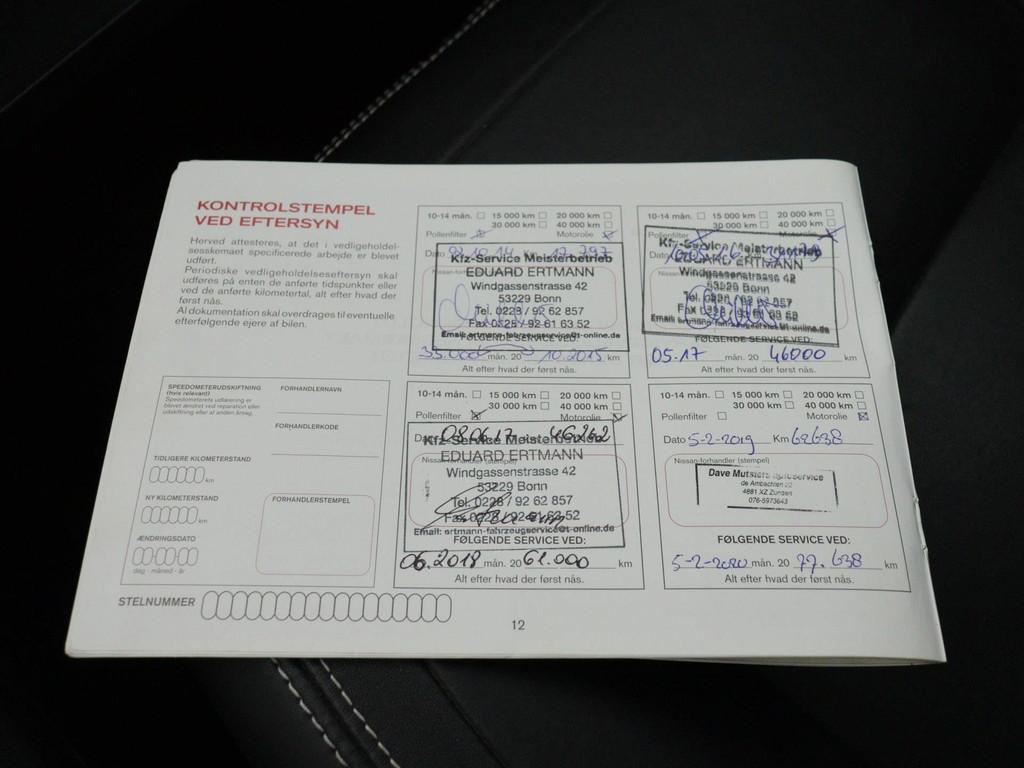 KONTROLSTEMPEL
VED EFTERSYN
Herved attesteres, at det i vedligeholdel-
sesskemaet specificerede arbejde er blevet
udført.
Periodiske vedligeholdelseseftersyn skal
udføres på enten de anførte tidspunkter eller
ved de anførte kilometertal, alt efter hvad der
først nås.
Al dokumentation skal overdrages til eventuelle
efterfølgende ejere af bilen.
SPEEDOMETERUDSKIFTNING
(hvis relevant)
Speedometerets udlæsning er
blevet ændret ved reparation eller
udskiftning eller af anden årsag.
TIDLIGERE KILOMETERSTAND
km
NY KILOMETERSTAND
km
ÆNDRINGSDATO
dag - måned - år
FORHANDLERNAVN
FORHANDLERKODE
FORHANDLERSTEMPEL
STELNUMMER
10-14 mån. 15 000 km 20 000 km
30 000 km 40 000 km
Pollenfilter Motorolie
Kfz-Service Meisterbetrieb
EDUARD ERTMANN
Windgassenstrasse 42
53229 Bonn
Tel. 0228 / 92 62 857
Fax 0228 / 92 61 63 52
Email: ertmann-fahrzeugservice@t-online.de
FØLGENDE SERVICE VED:
35.000 mån. 20 10.2015 km
Alt efter hvad der først nås.
10-14 mån. 15 000 km 20 000 km
30 000 km 40 000 km
Pollenfilter Motorolie
Kfz-Service Meisterbetrieb
EDUARD ERTMANN
Windgassenstrasse 42
53229 Bonn
Tel. 0228 / 92 62 857
FØLGENDE SERVICE VED:
05.17 mån. 20 46000 km
Alt efter hvad der først nås.
10-14 mån. 15 000 km 20 000 km
30 000 km 40 000 km
Pollenfilter Motorolie
08.06.17 46262
Kfz-Service Meisterbetrieb
EDUARD ERTMANN
Windgassenstrasse 42
53229 Bonn
Tel. 0228 / 92 62 857
Email: ertmann-fahrzeugservice@t-online.de
FØLGENDE SERVICE VED:
06.2018 mån. 20 61.000 km
Alt efter hvad der først nås.
10-14 mån. 15 000 km 20 000 km
30 000 km 40 000 km
Pollenfilter Motorolie
Dato 5-2-2019 Km 62638
Nissan-forhandler (stempel)
de Ambachten
4881 XZ Zundert
076-5973643
FØLGENDE SERVICE VED:
5-2-2020 mån. 20 77.638 km
Alt efter hvad der først nås.
12